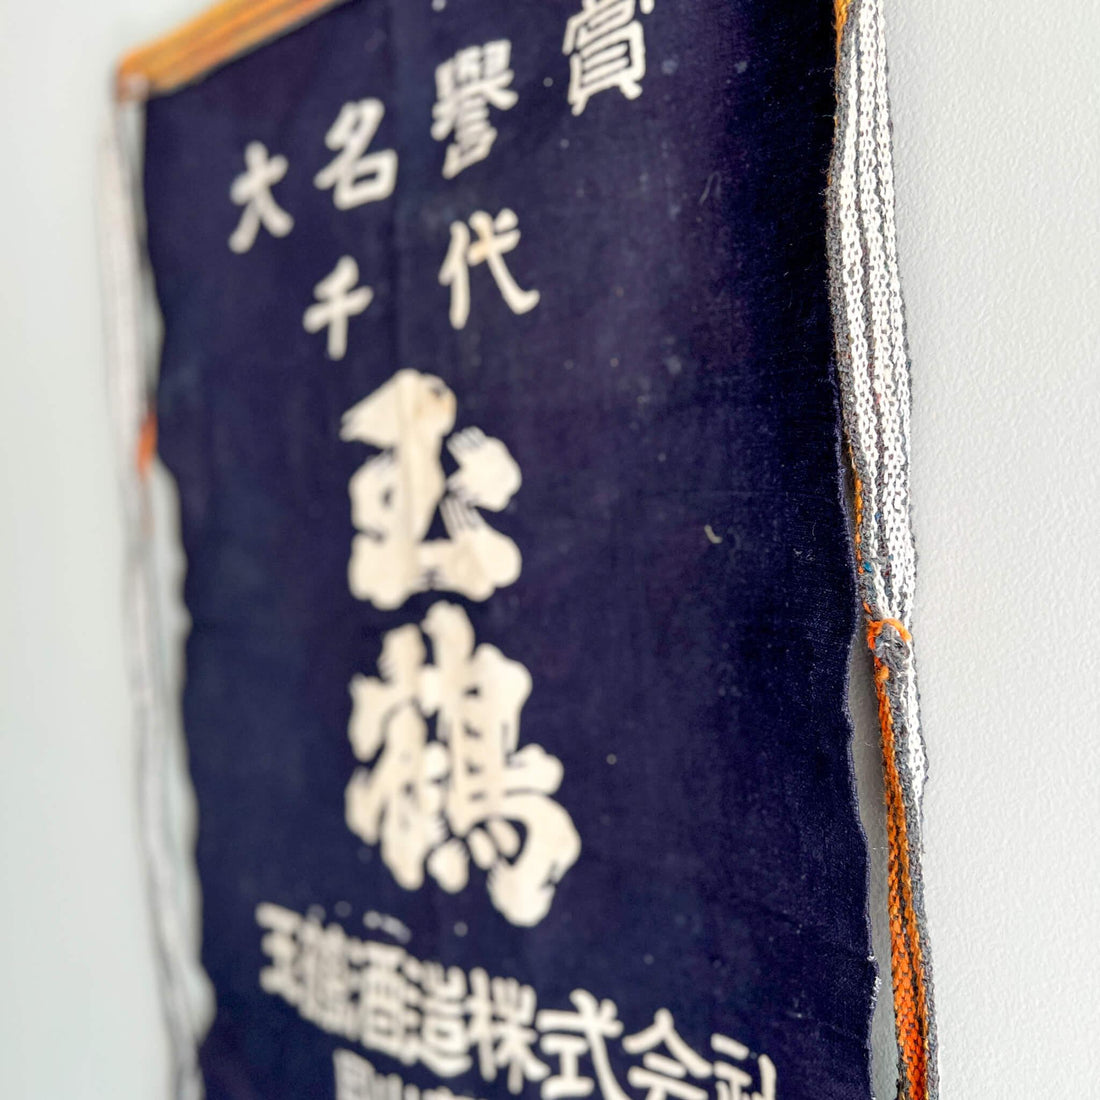 大名譽賞
千代
玉鶴
玉鶴酒造株式会